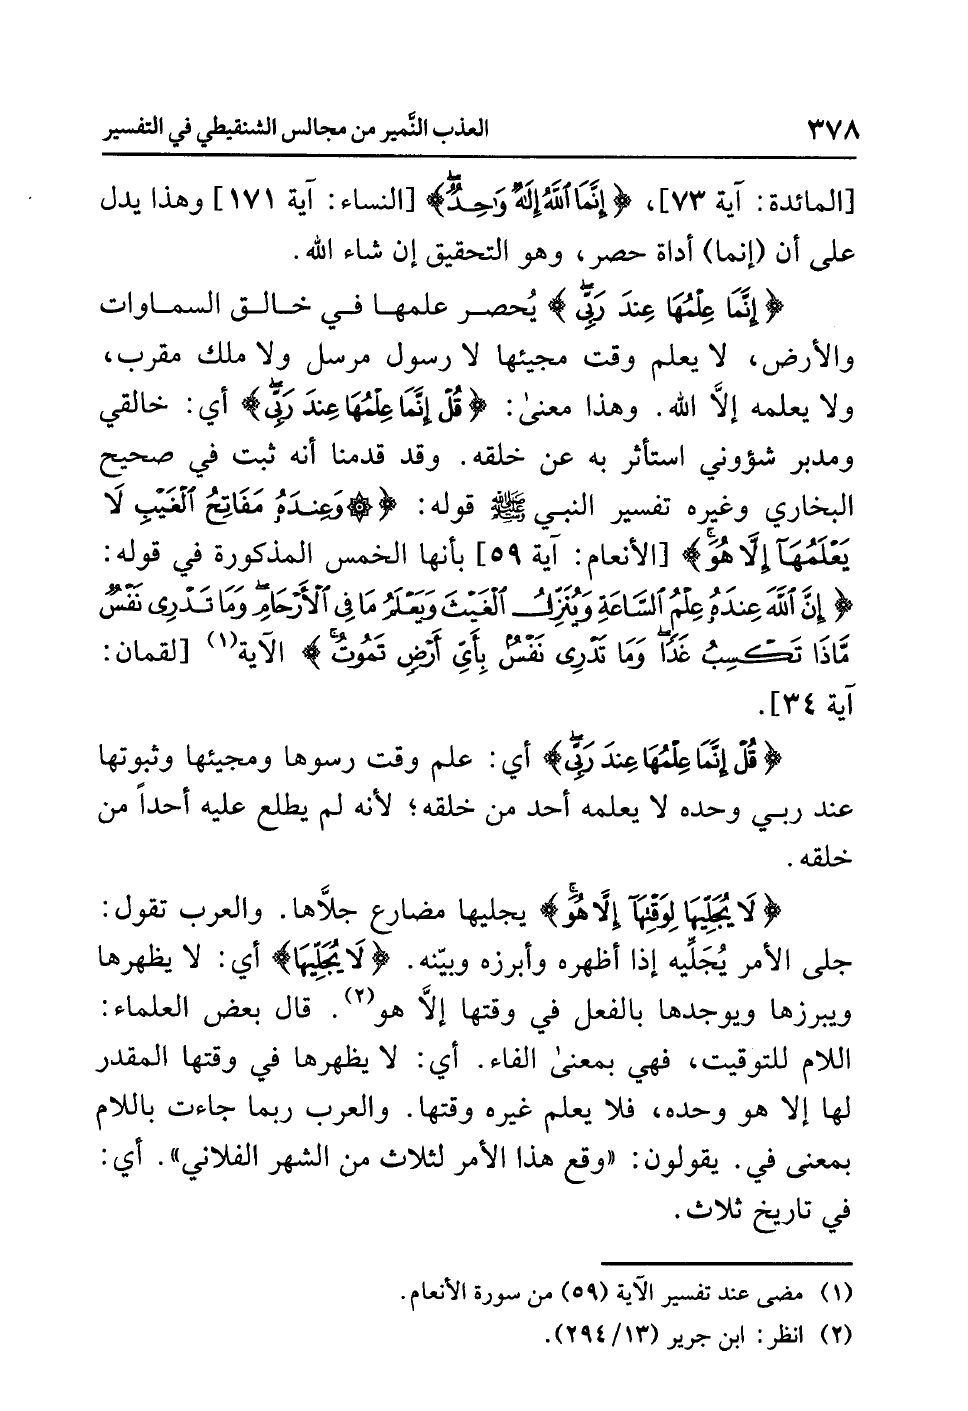 ٣٧٨ العذب النَّمير من مجالس الشنقيطي في التفسير
[المائدة: آية ٧٣]، ﴿إِنَّمَا ٱللَّهُ إِلَٰهٌ وَٰحِدٌ ۖ﴾ [النساء: آية ١٧١] وهذا يدل
على أن (إنما) أداة حصر، وهو التحقيق إن شاء الله.
﴿إِنَّمَا عِلْمُهَا عِندَ رَبِّي ۖ﴾ يُحصر علمها في خالق السماوات
والأرض، لا يعلم وقت مجيئها لا رسول مرسل ولا ملك مقرب،
ولا يعلمه إلَّا الله. وهذا معنىٰ: ﴿قُلْ إِنَّمَا عِلْمُهَا عِندَ رَبِّي ۖ﴾ أي: خالقي
ومدبر شؤوني استأثر به عن خلقه. وقد قدمنا أنه ثبت في صحيح
البخاري وغيره تفسير النبي ﷺ قوله: ﴿۞ وَعِندَهُۥ مَفَاتِحُ ٱلْغَيْبِ لَا
يَعْلَمُهَآ إِلَّا هُوَ ۚ﴾ [الأنعام: آية ٥٩] بأنها الخمس المذكورة في قوله:
﴿إِنَّ ٱللَّهَ عِندَهُۥ عِلْمُ ٱلسَّاعَةِ وَيُنَزِّلُ ٱلْغَيْثَ وَيَعْلَمُ مَا فِي ٱلْأَرْحَامِ ۖ وَمَا تَدْرِي نَفْسٌ
مَّاذَا تَكْسِبُ غَدًا ۖ وَمَا تَدْرِي نَفْسٌۢ بِأَيِّ أَرْضٍ تَمُوتُ ۚ﴾ الآية(١) [لقمان:
آية ٣٤].
﴿قُلْ إِنَّمَا عِلْمُهَا عِندَ رَبِّي ۖ﴾ أي: علم وقت رسوها ومجيئها وثبوتها
عند ربي وحده لا يعلمه أحد من خلقه؛ لأنه لم يطلع عليه أحداً من
خلقه.
﴿لَا يُجَلِّيهَا لِوَقْتِهَآ إِلَّا هُوَ ۚ﴾ يجليها مضارع جلَّاها. والعرب تقول:
جلى الأمر يُجَلِّيه إذا أظهره وأبرزه وبيّنه. ﴿لَا يُجَلِّيهَا﴾ أي: لا يظهرها
ويبرزها ويوجدها بالفعل في وقتها إلَّا هو(٢). قال بعض العلماء:
اللام للتوقيت، فهي بمعنىٰ الفاء. أي: لا يظهرها في وقتها المقدر
لها إلا هو وحده، فلا يعلم غيره وقتها. والعرب ربما جاءت باللام
بمعنى في. يقولون: «وقع هذا الأمر لثلاث من الشهر الفلاني». أي:
في تاريخ ثلاث.
(١) مضى عند تفسير الآية (٥٩) من سورة الأنعام.
(٢) انظر: ابن جرير (١٣/٢٩٤).